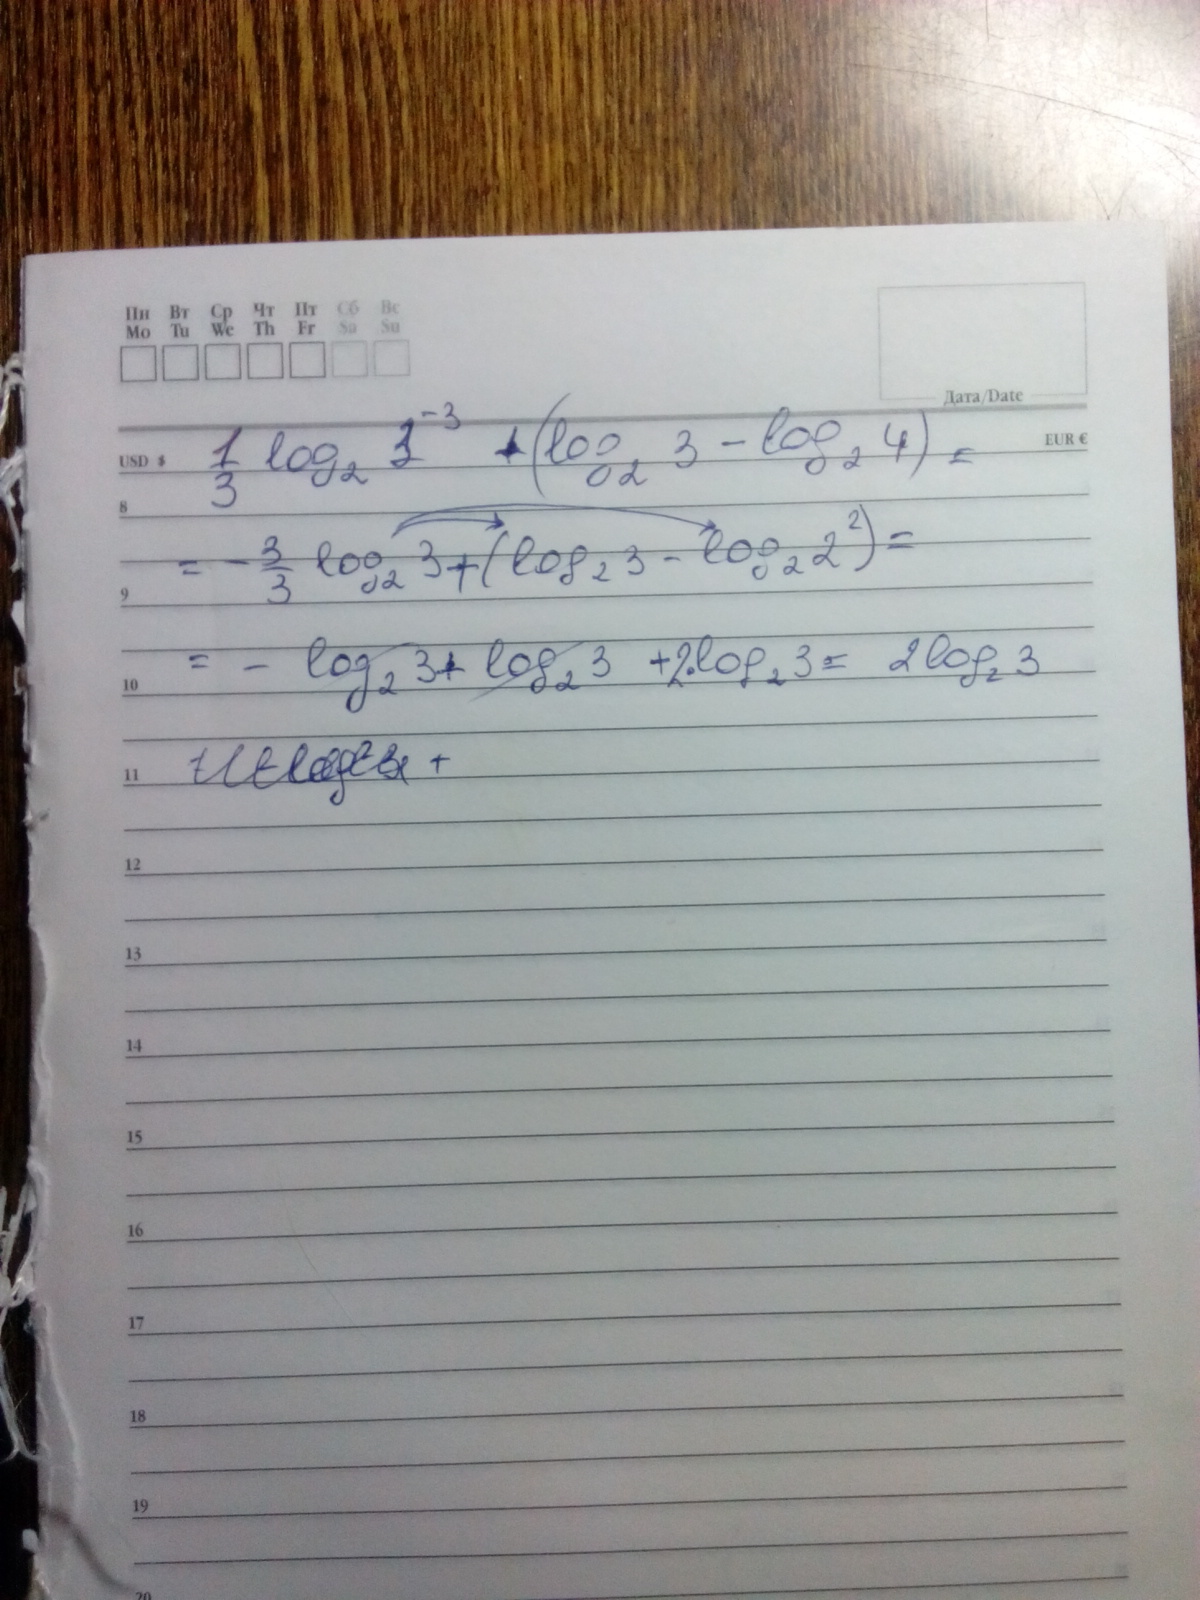 Пн Вт Ср Чт Пт Сб Вс
Mo Tu We Th Fr Sa Su
Дата/Date
USD $ 1/3 log₂ 3⁻³ + (log₂ 3 − log₂ 4) = EUR €
8
= − 3/3 log₂ 3 + (log₂ 3 − log₂ 2²) =
9
= − log₂ 3 + log₂ 3 + 2·log₂ 3 = 2 log₂ 3
10
11 +
12
13
14
15
16
17
18
19
20